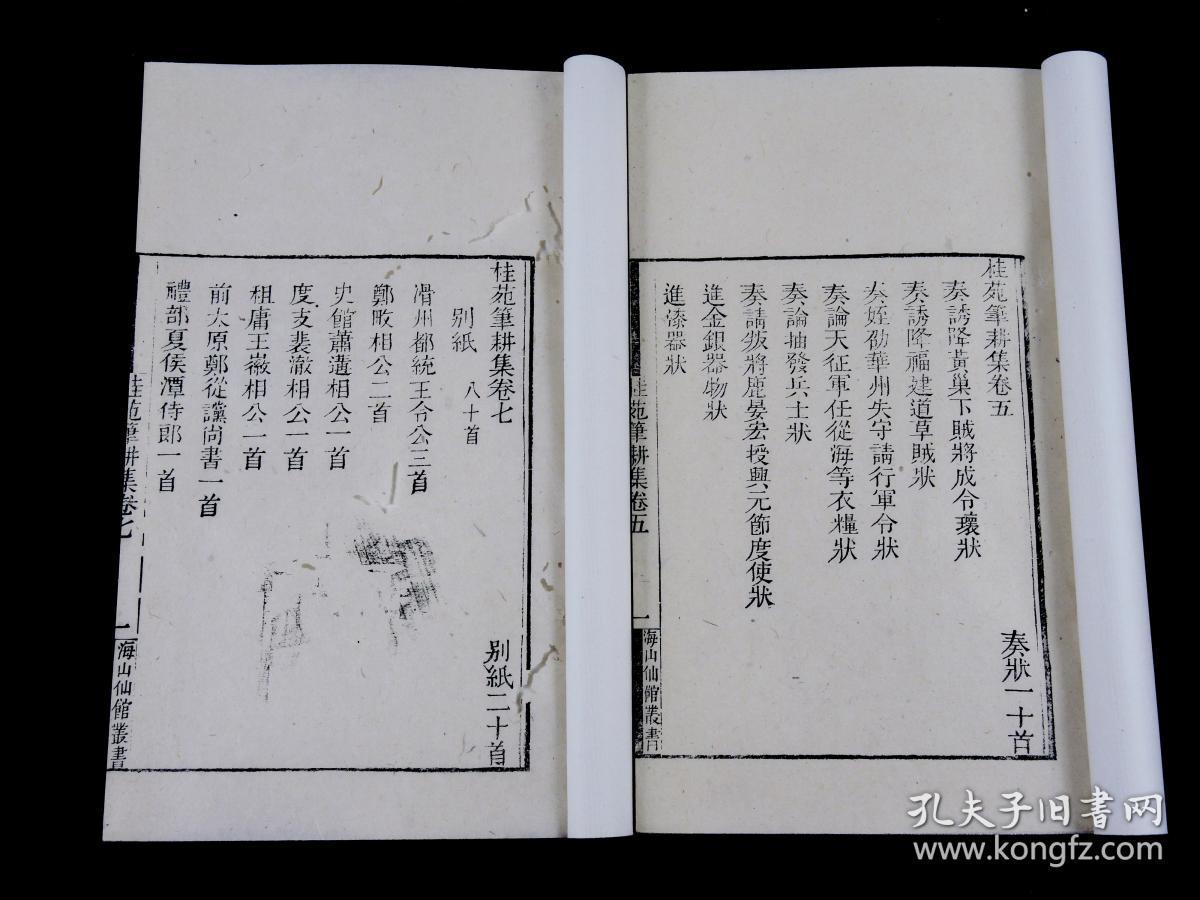 桂苑筆耕集卷五
奏狀一十首
奏誘降黃巢下賊將成令瓌狀
奏誘降福建道草賊狀
奏姪劭華州失守請行軍令狀
奏論天征軍任從海等衣糧狀
奏論抽發兵士狀
奏請叛將鹿晏宏授興元節度使狀
進金銀器物狀
進漆器狀
桂苑筆耕集卷五
一
海山仙館叢書
桂苑筆耕集卷七
別紙二十首
別紙 八十首
滑州都統王令公三首
鄭畋相公二首
史館蕭遘相公一首
度支裴澈相公一首
租庸王徽相公一首
前太原鄭從讜尚書一首
禮部夏侯潭侍郎一首
桂苑筆耕集卷七
一
海山仙館叢書
孔夫子旧書网
www.kongfz.com